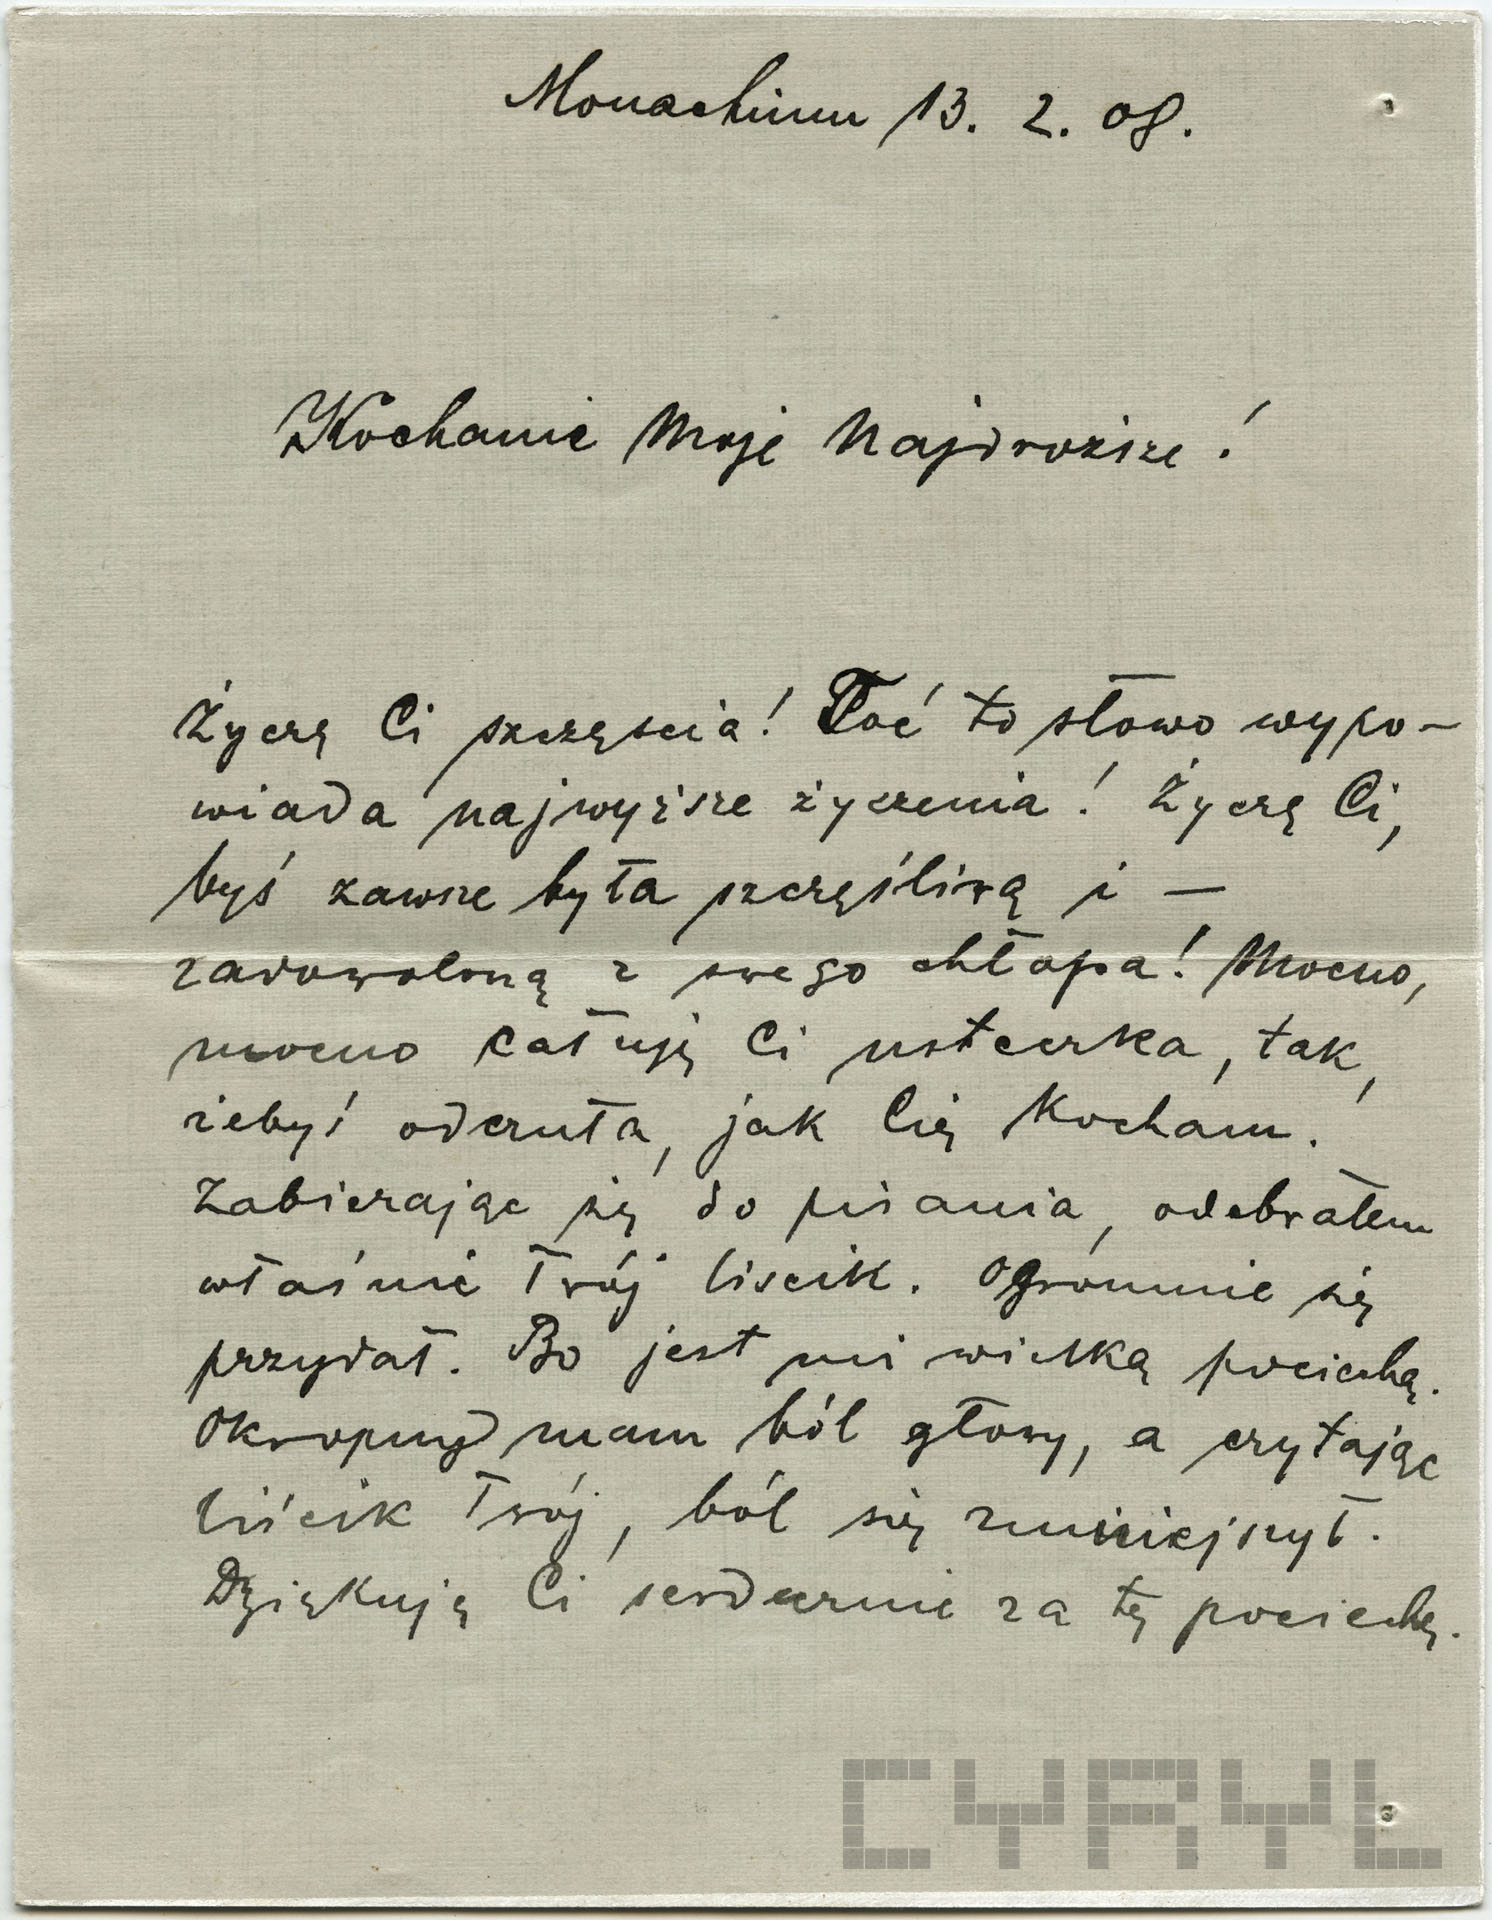 Monachium 13. 2. 08.
Kochanie Moje Najdroższe!
Życzę Ci szczęścia! Toć to słowo wypo-
wiada najwyższe życzenia! Życzę Ci,
byś zawsze była szczęśliwą i —
zadowoloną z swego chłopa! Mocno,
mocno całuję Ci usteczka, tak,
żebyś odczuła, jak Cię kocham.
Zabierając się do pisania, odebrałem
właśnie Twój liscik. Ogromnie się
przydał. Bo jest mi wielką pociechą.
Okropny mam ból głowy, a czytając
liścik Twój, ból się zmniejszył.
Dziękuję Ci serdecznie za tę pociechę.
CYRYL